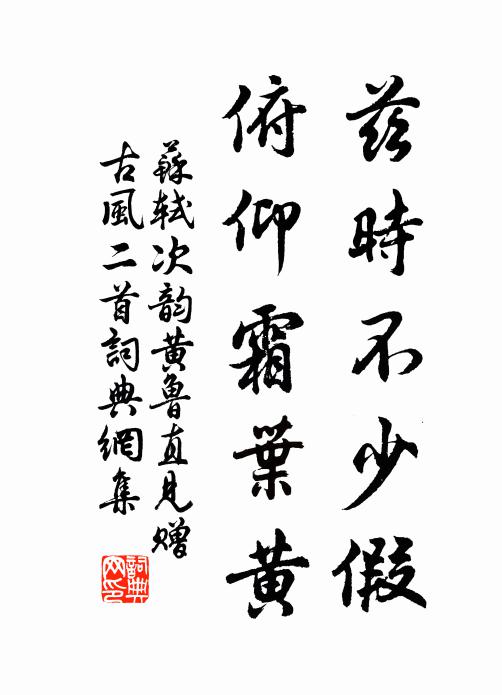 茲時不少假
俯仰霜葉黄
蘇軾次韵黄魯直見贈
古風二首詞典網集
詞典
网印